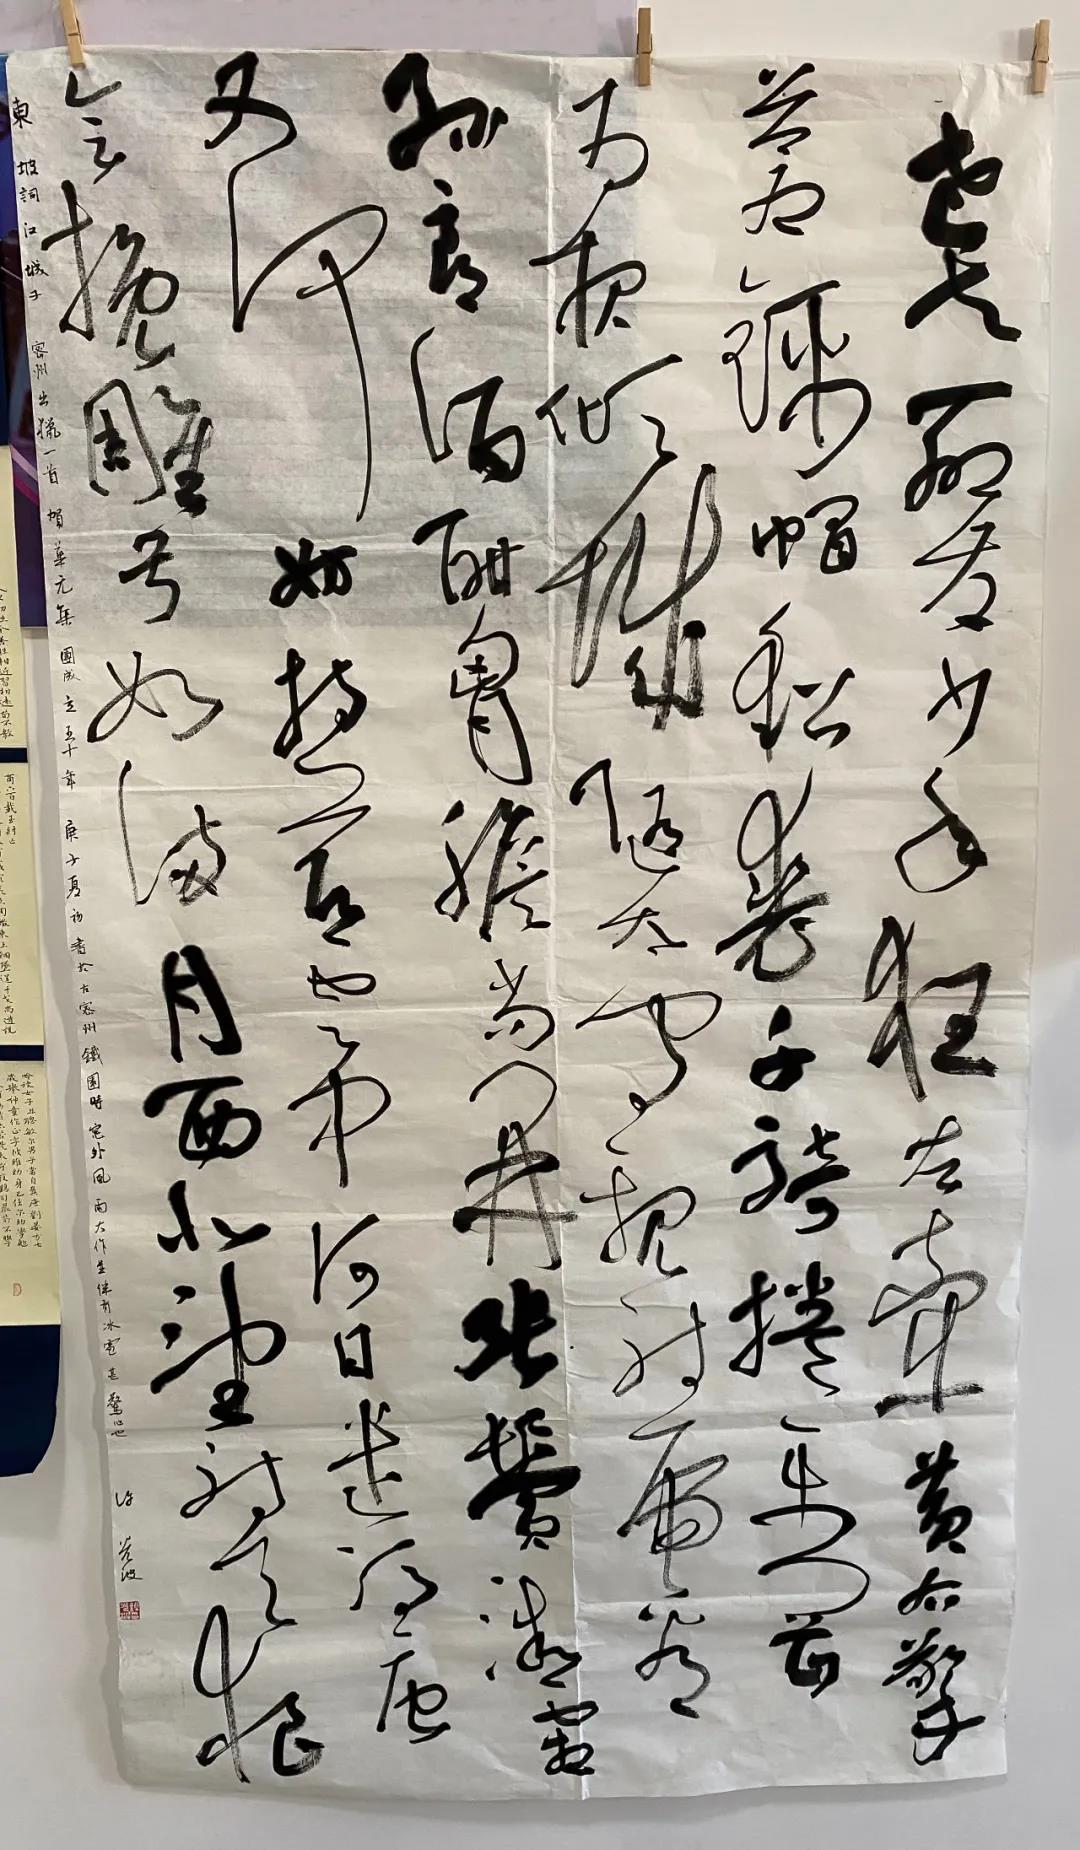 老夫聊發少年狂左牽黃右擎
蒼錦帽貂裘千騎捲平岡
為報傾城隨太守親射虎看
孫郎酒酣胸膽尚開張鬢微霜
又何妨持節雲中何日遣馮唐
會挽雕弓如滿月西北望射天狼
東坡詞江城子 密州出獵一首 賀華元集團成立五十年 庚子夏初書於古密州鐵園時窗外風雨大作並伴有冰雹甚驚心也
許 波